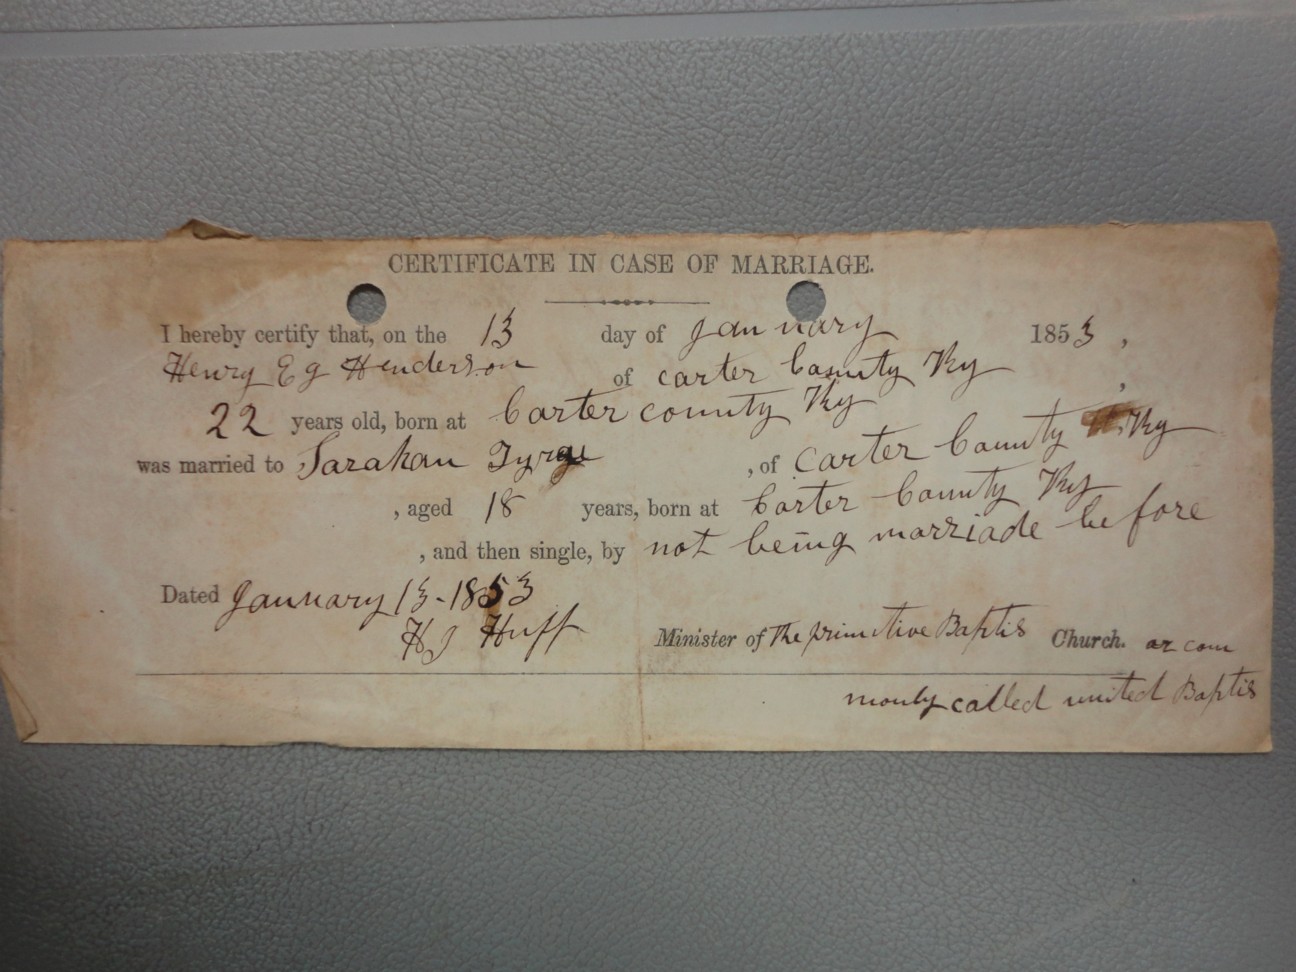 CERTIFICATE IN CASE OF MARRIAGE.
I hereby certify that, on the 13 day of January 1853,
Henry Eg Henderson of carter County Ky,
22 years old, born at Carter county Ky
was married to Sarahan, of carter County Ky
, aged 18 years, born at Carter County Ky
, and then single, by not being marriade before
Dated January 13-1853
H J Huff Minister of The primitive Baptis Church. ar com
monly called united Baptis